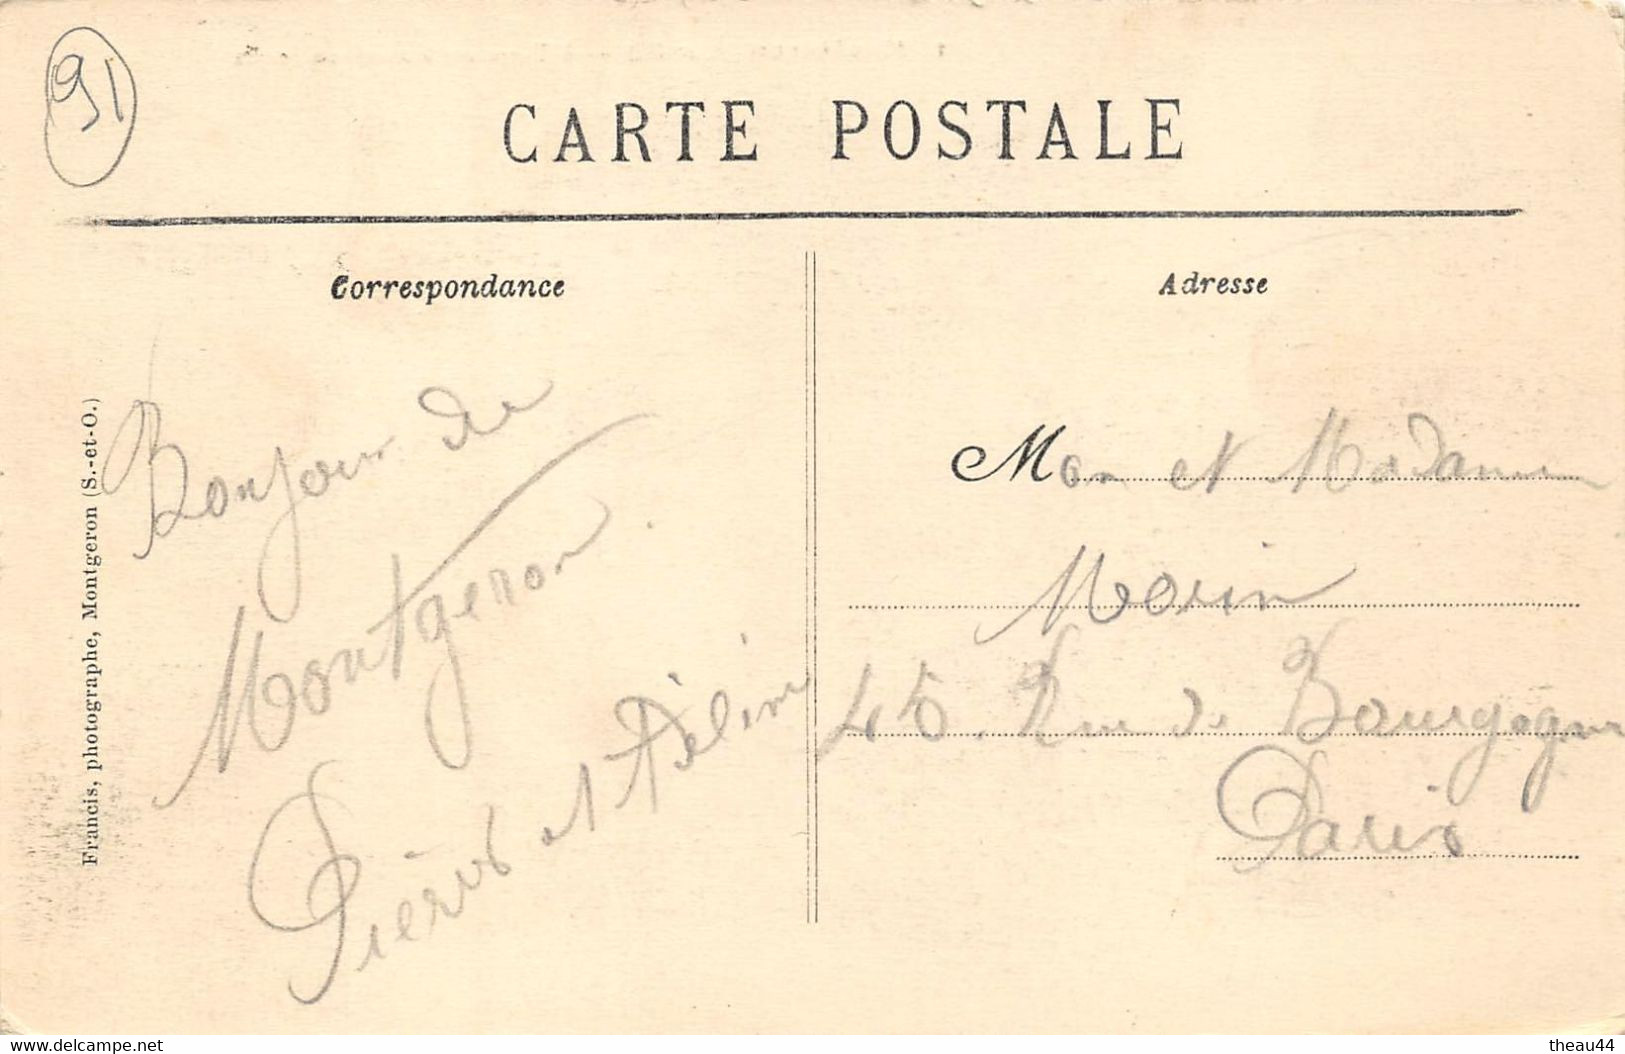 91
CARTE POSTALE
Correspondance
Adresse
Bonjour de
Montgeron.
Pierre et Adèline
Mon et Madame
Morin
45. Rue de Bourgogne
Paris
Francis, photographe, Montgeron (S.-et-O.)
www.delcampe.net
theau44